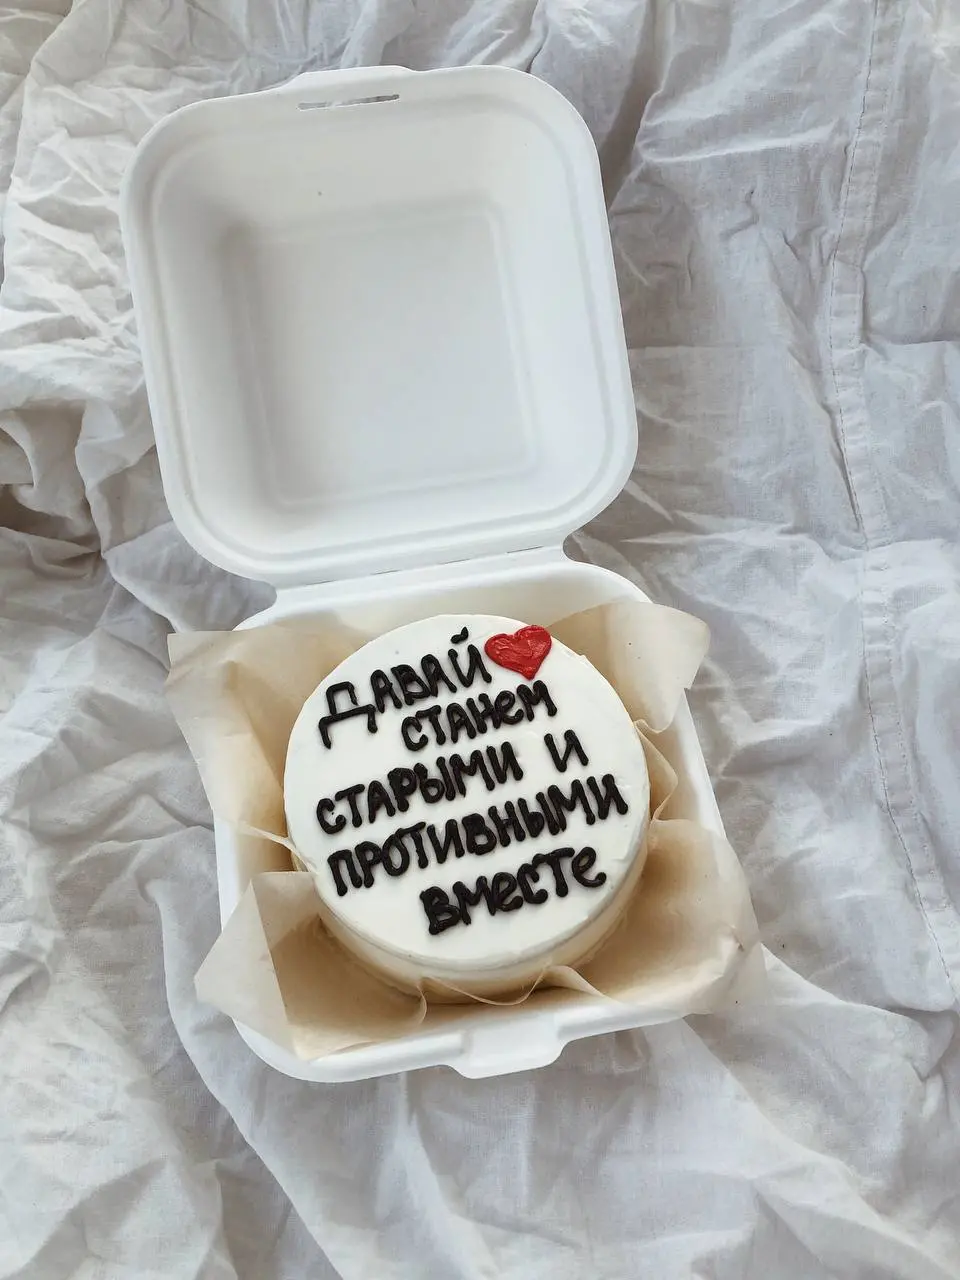 ДАВАЙ
СТАНЕМ
СТАРЫМИ И
ПРОТИВНЫМИ
ВМЕСТЕ